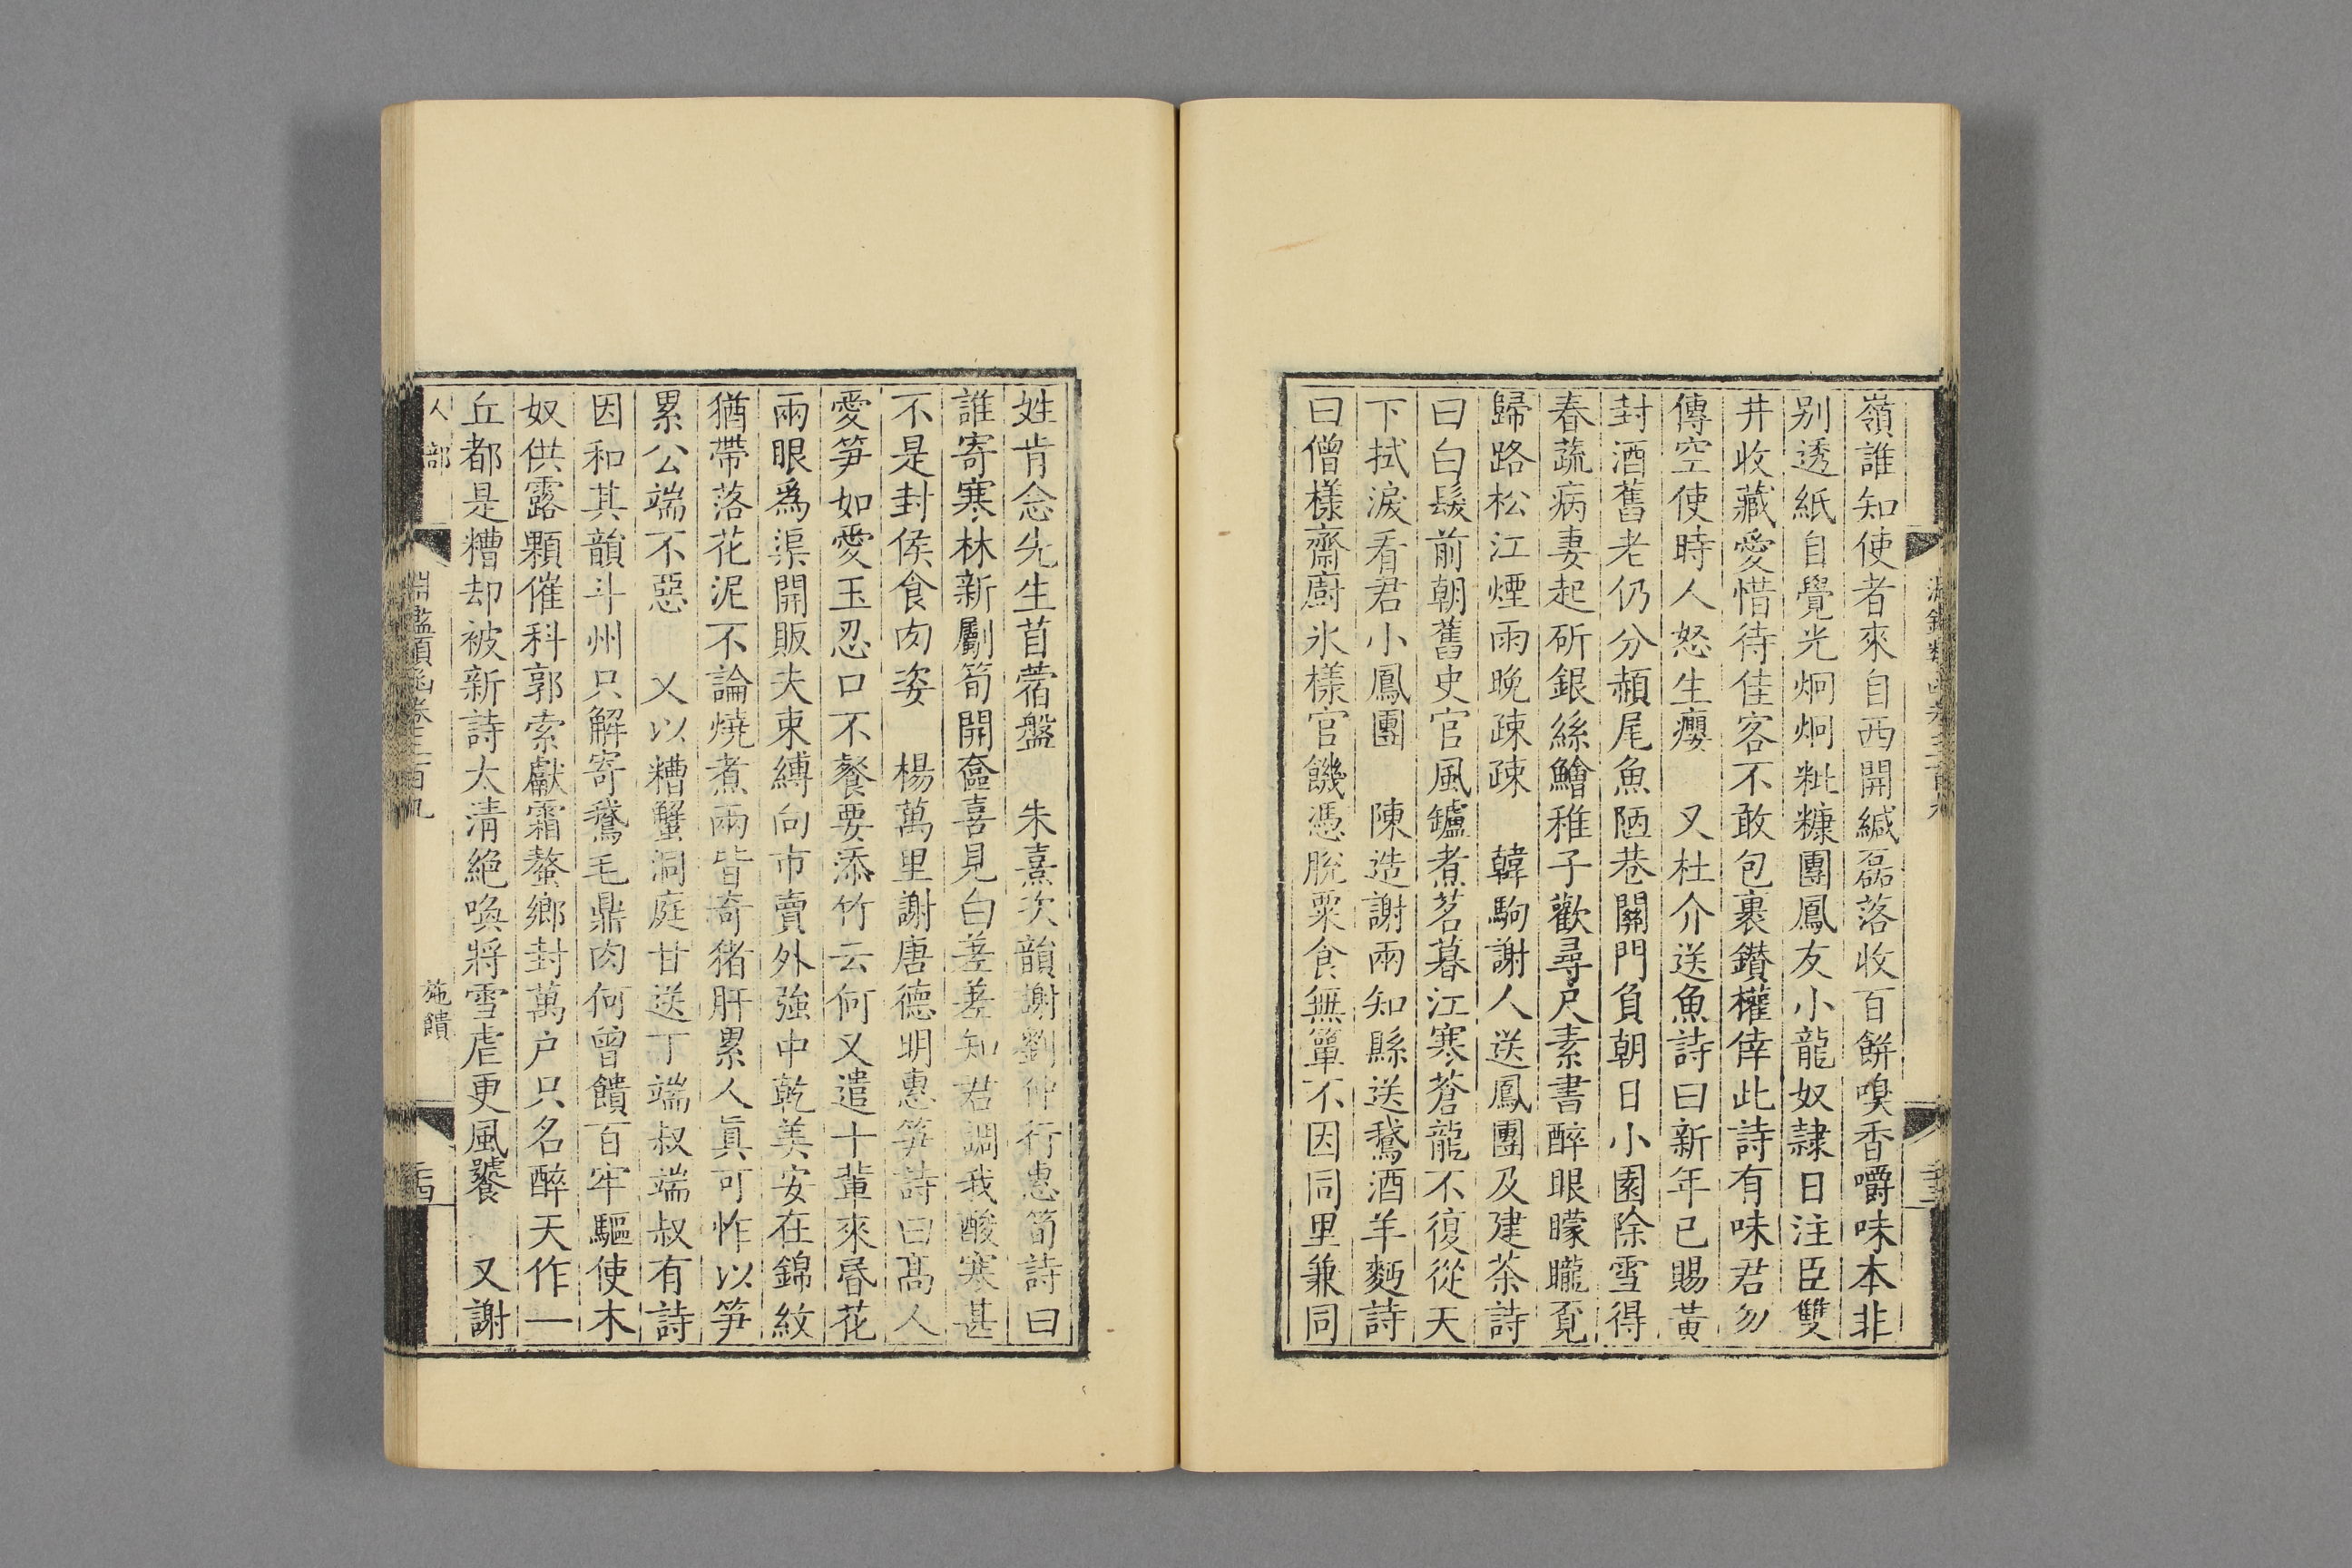 嶺誰知使者來自西開緘磊落收百餅嗅香嚼味本非
别透紙自覺光炯炯粃糠團鳳友小龍奴隷日注臣雙
井收藏愛惜待佳客不敢包裹鑚權倖此詩有味君勿
傳空使時人怒生癭　又杜介送魚詩曰新年已賜黃
封酒舊老仍分赬尾魚陋巷關門負朝日小園除雪得
春蔬病妻起斫銀絲鱠稚子歡尋尺素書醉眼矇矓覔
歸路松江煙雨晚疎疎　韓駒謝人送鳳團及建茶詩
曰白髮前朝舊史官風鑪煮茗暮江寒蒼龍不復從天
下拭淚看君小鳳團　陳造謝兩知縣送鵞酒羊麪詩
曰僧樣齋廚氷樣官饑憑脫粟食無簞不因同里兼同
姓肯念先生苜蓿盤　朱熹次韻謝劉仲行惠筍詩曰
誰寄寒林新劚筍開奩喜見白差差知君調我酸寒甚
不是封侯食肉姿　楊萬里謝唐德明惠笋詩曰髙人
愛笋如愛玉忍口不餐要添竹云何又遣十輩來昏花
兩眼爲渠開販夫束縛向市賣外強中乾美安在錦紋
猶帶落花泥不論燒煮兩皆奇猪肝累人眞可怍以笋
累公端不惡　又以糟蟹洞庭甘送丁端叔端叔有詩
因和其韻斗州只解寄鵞毛鼎肉何曾饋百牢驅使木
奴供露顆催科郭索獻霜螯鄉封萬户只名醉天作一
丘都是糟却被新詩太清絕喚將雪虐更風饕　又謝
人部
淵鑑類函卷三百九
施饋
二十四